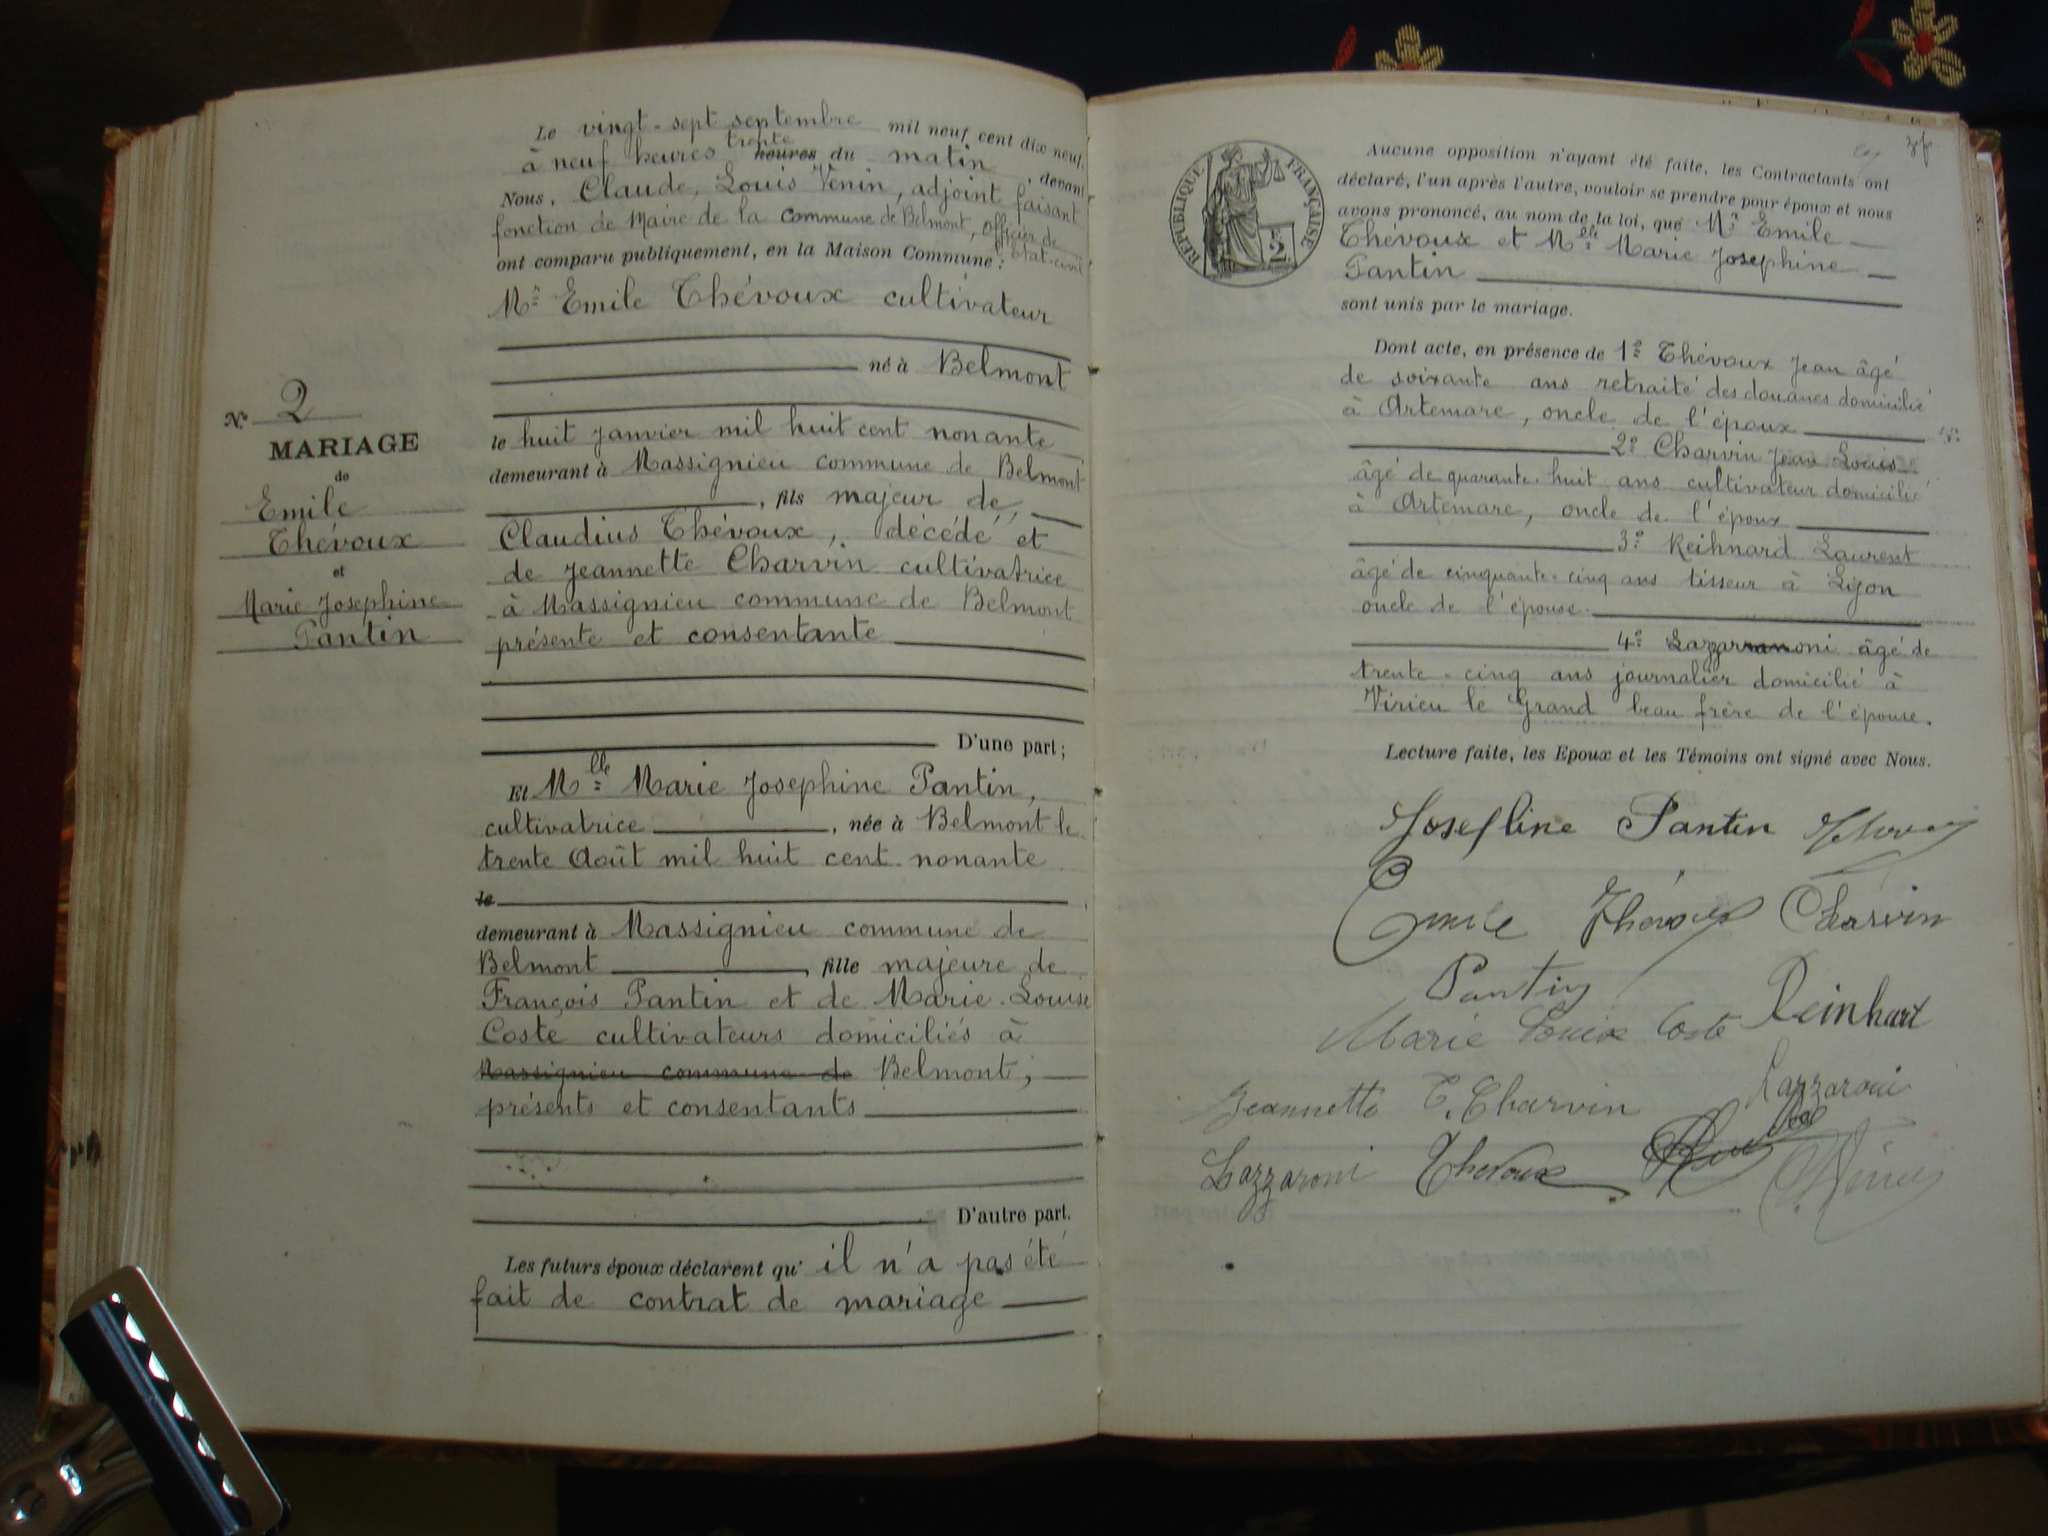 Le vingt-sept septembre mil neuf cent dix neuf,
à neuf heures trente heures du matin, devant
Nous, Claude, Louis Venin, adjoint faisant
fonction de Maire de la Commune de Belmont, Officier de
Etat-civil
ont comparu publiquement, en la Maison Commune :
Mr Emile Thévoux cultivateur
né à Belmont
le huit janvier mil huit cent nonante
demeurant à Massignieu commune de Belmont
, fils majeur de,
Claudius Thévoux, décédé et
de Jeannette Charvin cultivatrice
à Massignieu commune de Belmont
présente et consentante
D'une part ;
Et Mlle Marie Josephine Pantin,
cultivatrice , née à Belmont le
trente Août mil huit cent nonante
le
demeurant à Massignieu commune de
Belmont , fille majeure de
François Pantin et de Marie-Louise
Coste cultivateurs domiciliés à
Massignieu commune de Belmont ;
présents et consentants
D'autre part.
Les futurs époux déclarent qu' il n'a pas été
fait de contrat de mariage
N° 2
MARIAGE
de
Emile
Thévoux
et
Marie Josephine
Pantin
RÉPUBLIQUE FRANÇAISE
2
Aucune opposition n'ayant été faite, les Contractants ont
déclaré, l'un après l'autre, vouloir se prendre pour époux et nous
avons prononcé, au nom de la loi, que Mr Emile
Thévoux et Mlle Marie Josephine
Pantin
sont unis par le mariage.
Dont acte, en présence de 1° Thévoux Jean âgé
de soixante ans retraité des douanes domicilié
à Artemare, oncle de l'époux
2° Charvin Jean Louis
âgé de quarante-huit ans cultivateur domicilié
à Artemare, oncle de l'époux
3° Reihnard Laurent
âgé de cinquante-cinq ans tisseur à Lyon
oncle de l'épouse.
4° Lazzarranoni âgé de
trente-cinq ans journalier domicilié à
Virieu le Grand beau frère de l'épouse.
Lecture faite, les Epoux et les Témoins ont signé avec Nous.
Josephine Pantin
Emile Thévoux Charvin
Pantin
Marie Louise Coste Reinhart
Jeannette T. Charvin Lazzaroni
Lazzaroni Thevoux